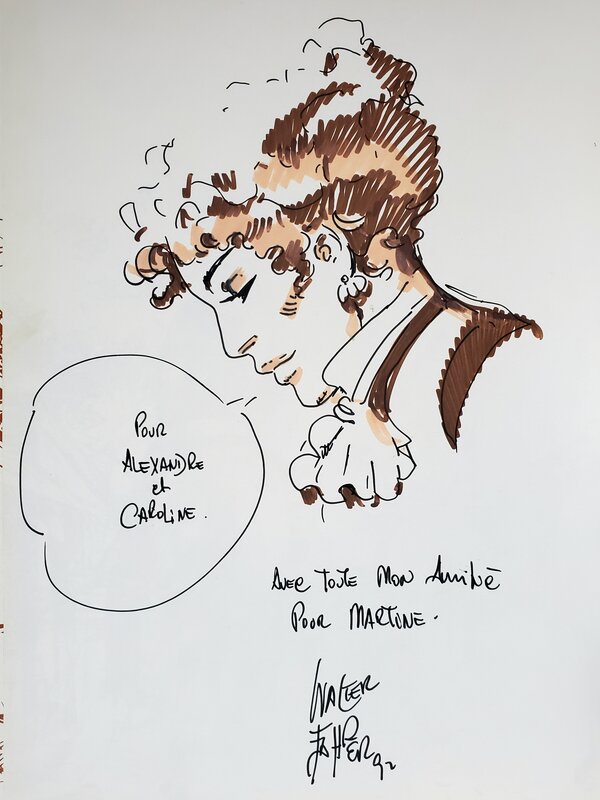 POUR
ALEXANDRE
et
CAROLINE.
AVEC TOUTE MON Amitié
POUR MARTINE.
WALTER
FAHRER 92